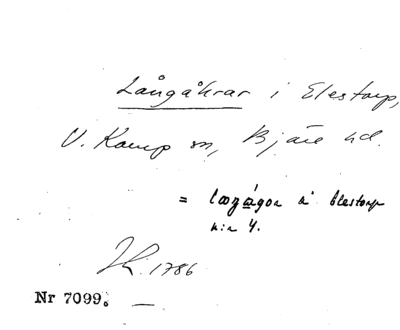 Långåkrar i Elestorp,
V. Karup sn, Bjäre hd.
= lɷŋágɷa i Elestorp
n:r 4.
1786
Nr 7099.